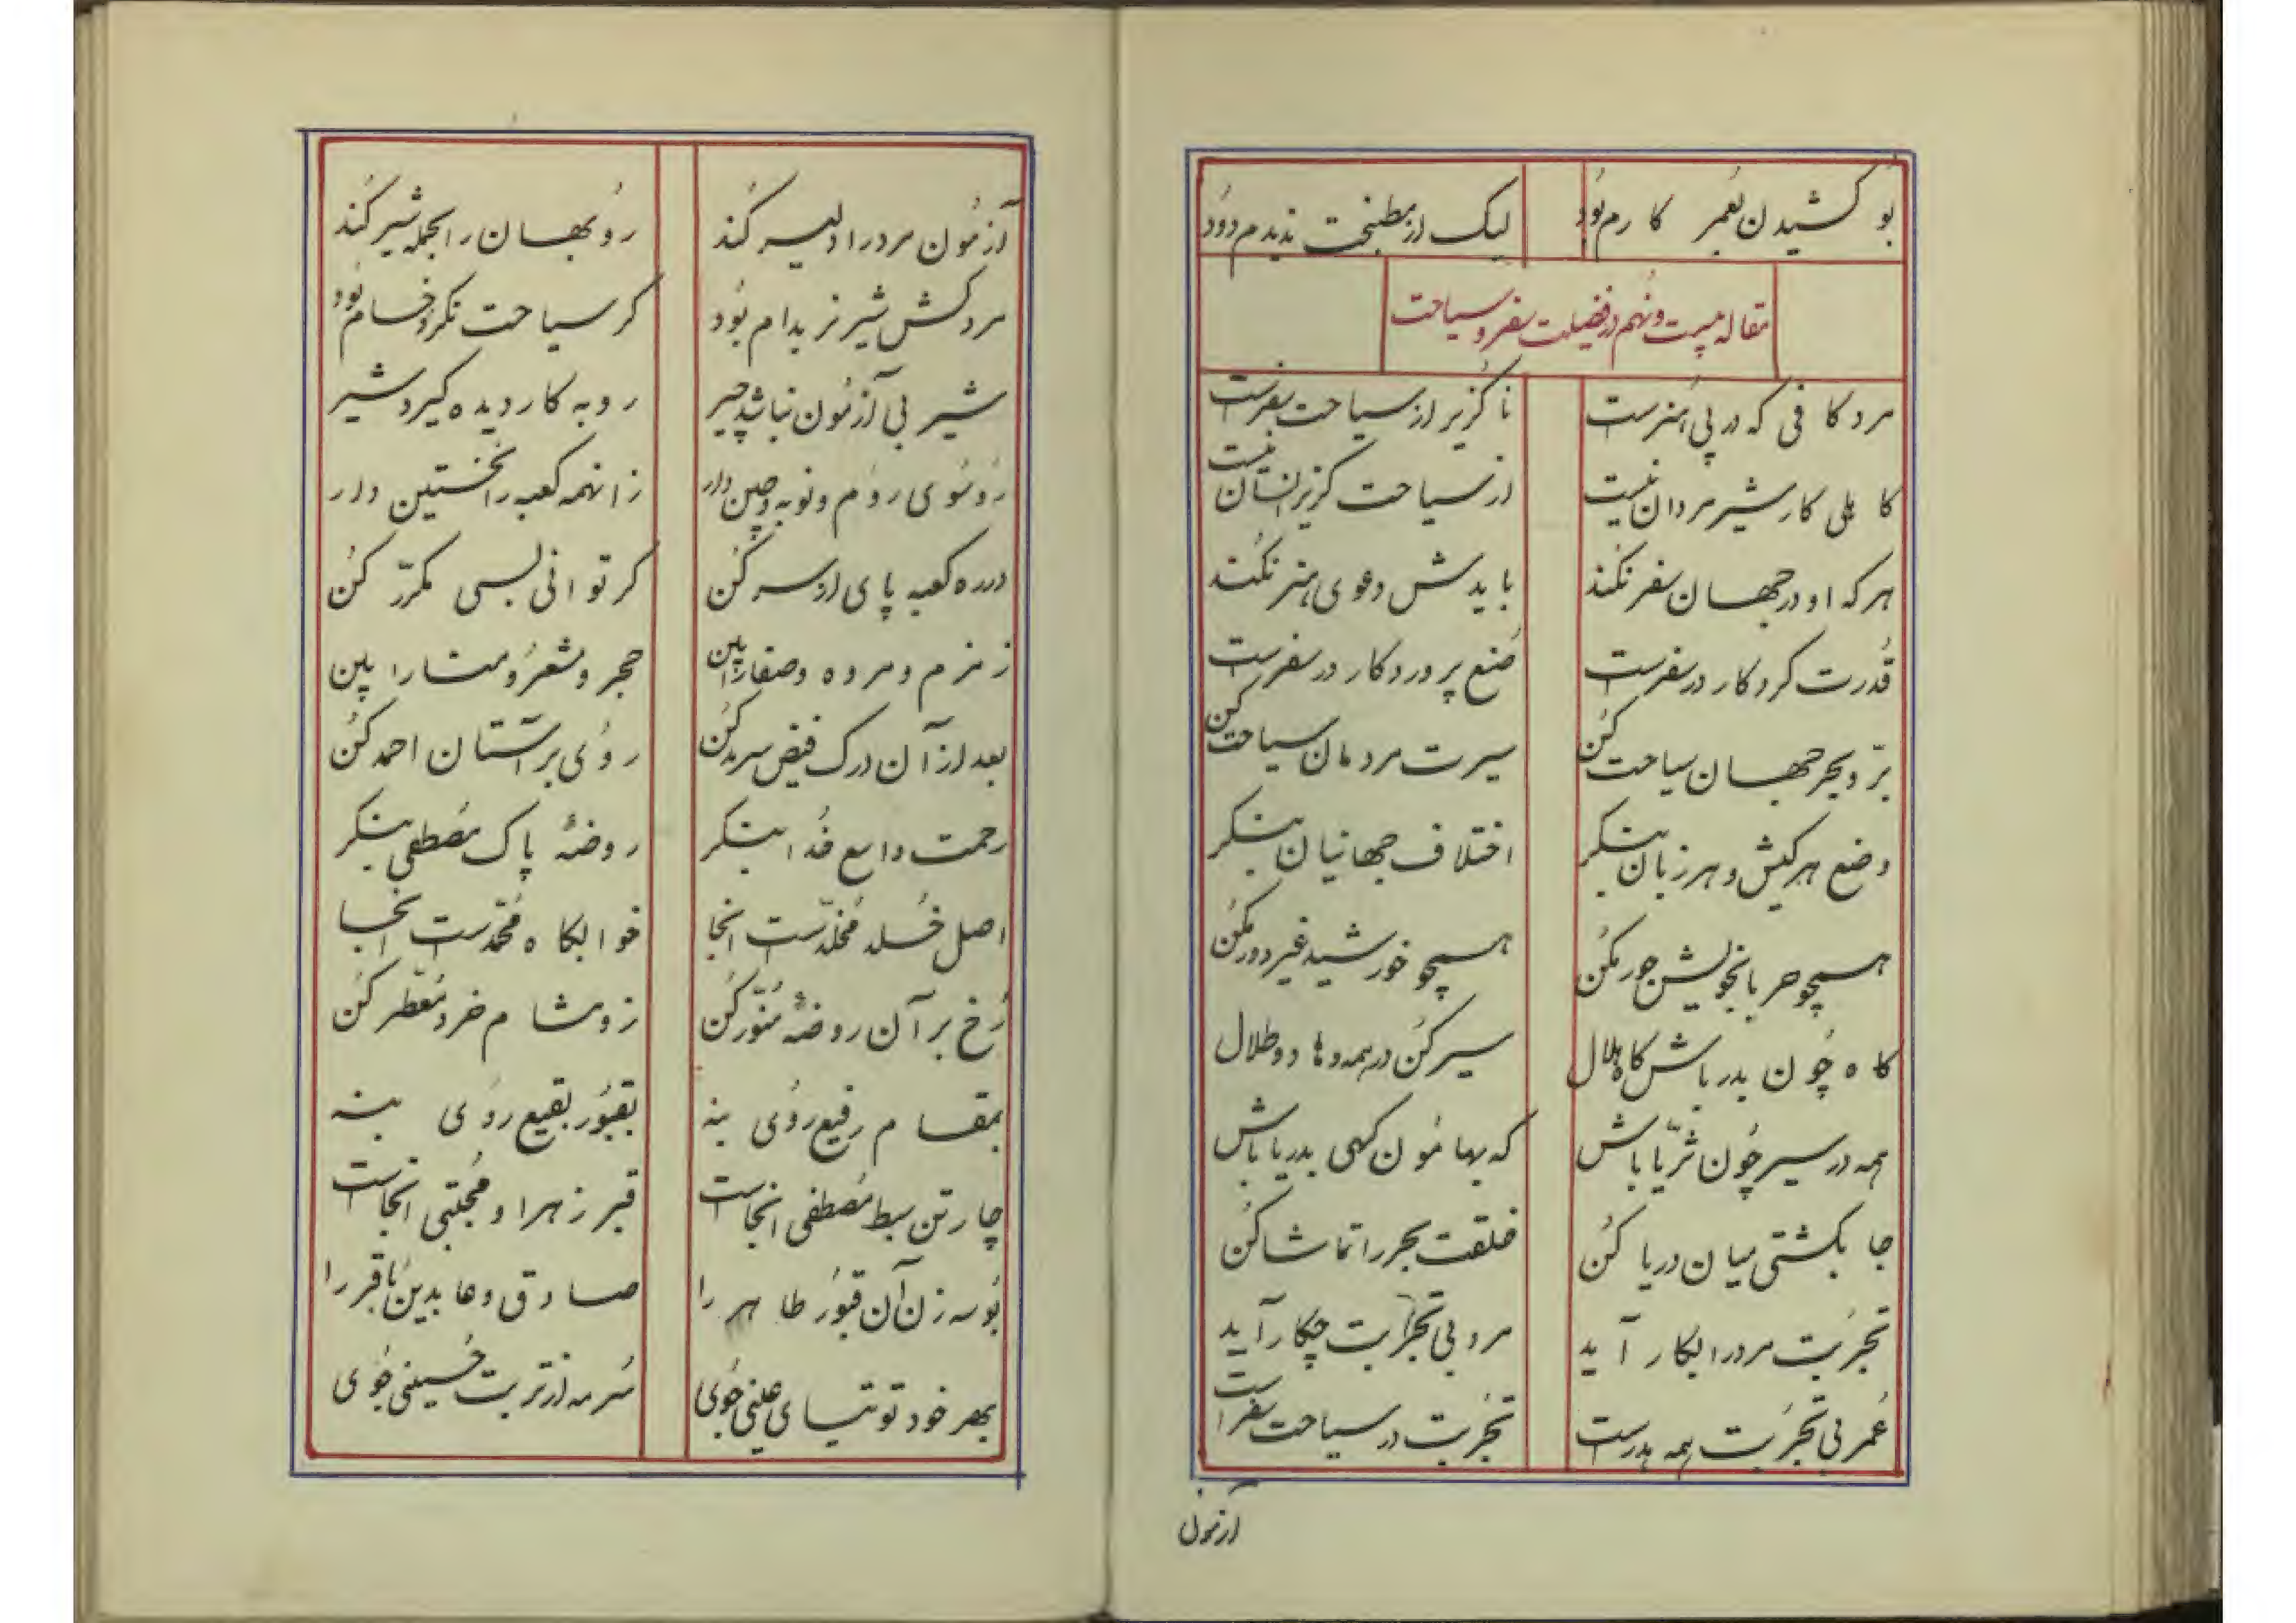 بو کشیدن بعمر کارم بود لیک از مطبخت ندیدم دود
مقاله بیست و نهم در فضیلت سفر و سیاحت
مرد کافی که در پی هنرست ناگزیر از سیاحت سفرست
کاهلی کار شیر مردان نیست از سیاحت گریز انسان نیست
هر که او در جهان سفر نکند بایدش دعوی هنر نکند
قدرت کردکار در سفرست صنع پروردکار در سفرست
برّ و بحر جهان سیاحت کن سیرت مردمان سیاحت کن
وضع هر کیش و هر زبان بنگر اختلاف جهانیان بنگر
همچو حربا بخویش جور مکن همچو خورشید غیر دور مکن
کاه چون بدر باش کاه هلال سیر کن در همه وهاد و طلال
همه در سیر چون ثریّا باش که بهامون کهی بدریا باش
جا بکشتی میان دریا کن خلقت بحر را تماشا کن
تجربت مرد را بکار آید مرد بی تجربت چکار آید
عمر بی تجربت همه هدرست تجربت در سیاحت سفرست
آزمون
آزمون مرد را دلیر کند روبهان را بجمله شیر کند
مرد کش شیر نر بدام بود کر سیاحت نکرد خام بود
شیر بی آزمون نباشد چیر روبه کار دیده کیرد شیر
رو سوی روم و نوبه و چین دار زانهمه کعبه را نخستین دار
در ره کعبه پای از سر کن کر توانی بسی مکرّر کن
زمزم و مروه و صفا را بین حجر و مشعر و منا را بین
بعد از آن درک فیض سرمد کن روی بر آستان احمد کن
رحمت واسع خدا بنگر روضهٔ پاک مصطفی بنگر
اصل خلد مخلّدست انجا خوابگاه محمّدست انجا
رخ بر آن روضهٔ منوّر کن زو مشام خرد معطّر کن
بمقام رفیع روی بنه بقبور بقیع روی بنه
چارتن سبط مصطفی انجاست قبر زهرا و مجتبی انجاست
بوسه زن آن قبور طاهر را صادق و عابدین باقر را
بهر خود توتیای عینی جوی سرمه از تربت حسینی جوی